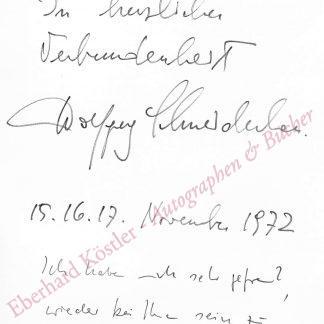 In herzlicher
Verbundenheit
Wolfgang Schneiderhan.
15. 16. 17. November 1972
Ich habe mich sehr gefreut,
wieder bei Ihnen sein zu
Eberhard Köstler - Autographen & Bücher